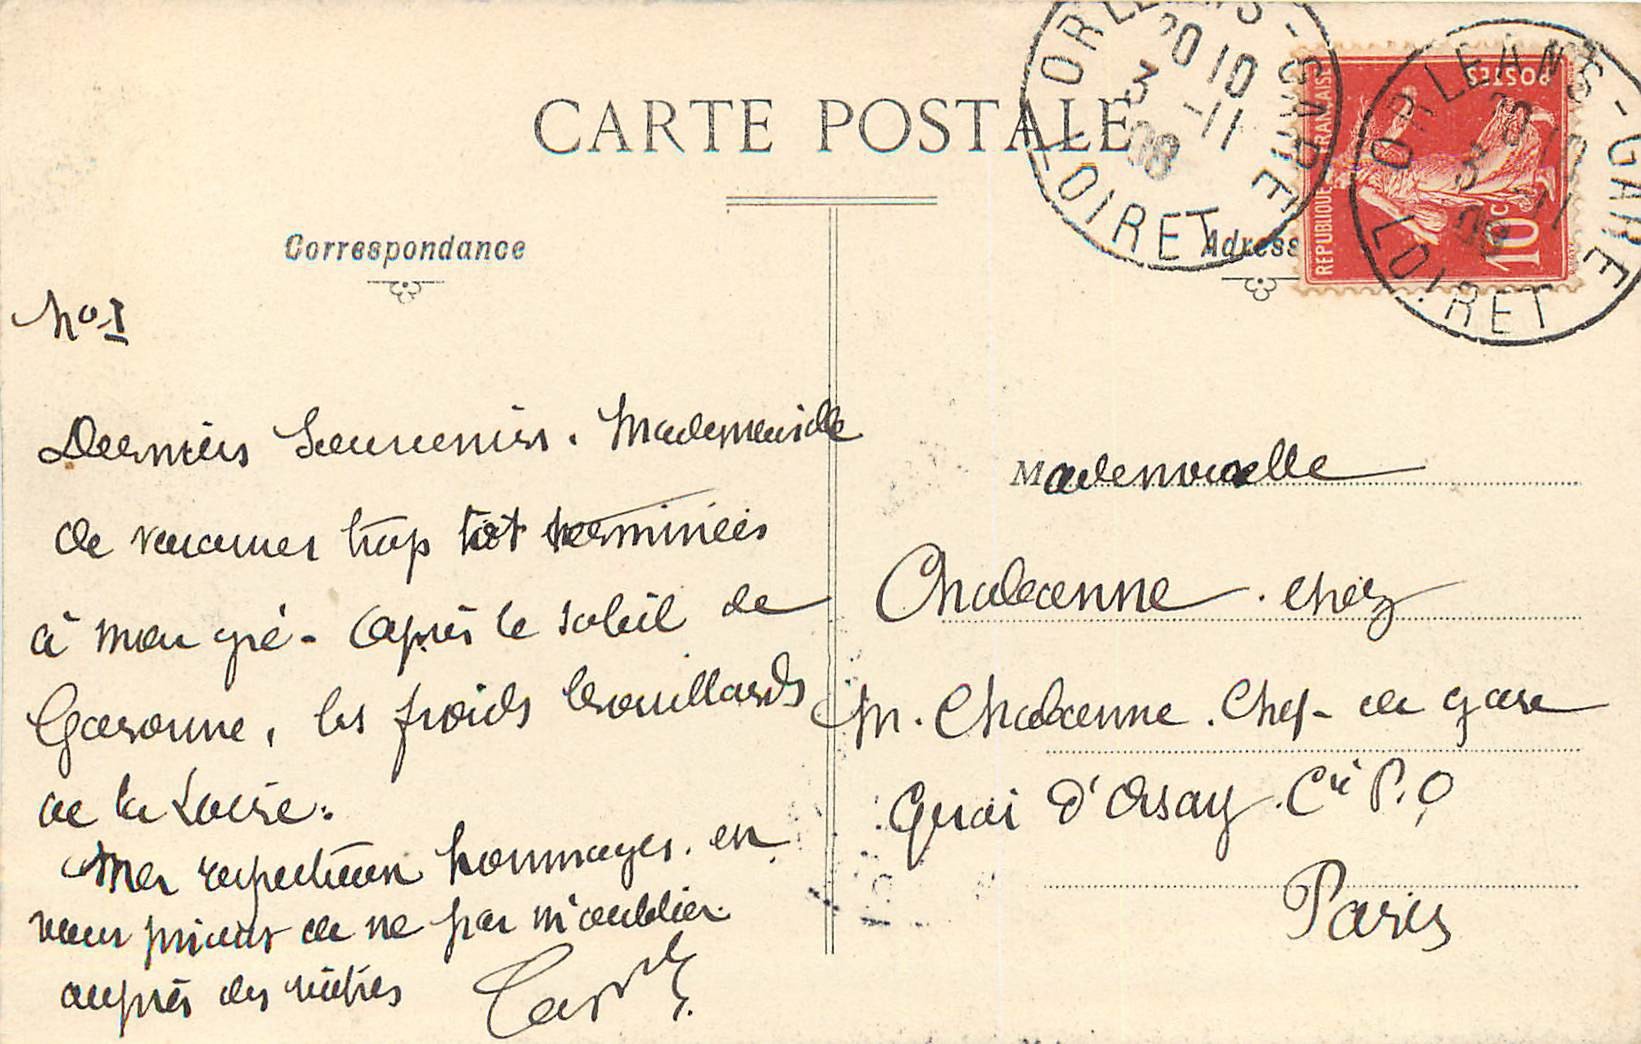 CARTE POSTALE
ORLEANS-GARE
20 10
3 -11
08
LOIRET
REPUBLIQUE FRANÇAISE
POSTES
10c
ORLEANS-GARE
3 11
LOIRET
Correspondance
No 1
Derniers Souvenirs. Mademoiselle
de vacances trop tôt terminées
à mon gré - Après le soleil de
Garonne, les froids brouillards
de la Loire.
Mes respectueux hommages. en
vous priant de ne pas m'oublier
auprès des vôtres
Adresse
Mademoiselle
Chabanne. chez
M. Chabanne. Chef- de gare
Quai d'Orsay. Cie P.O
Paris